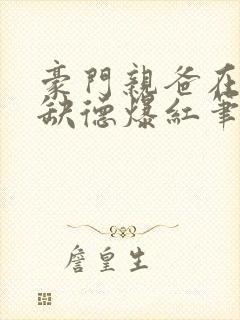 豪門親爸在
缺德爆紅筆
詹皇生